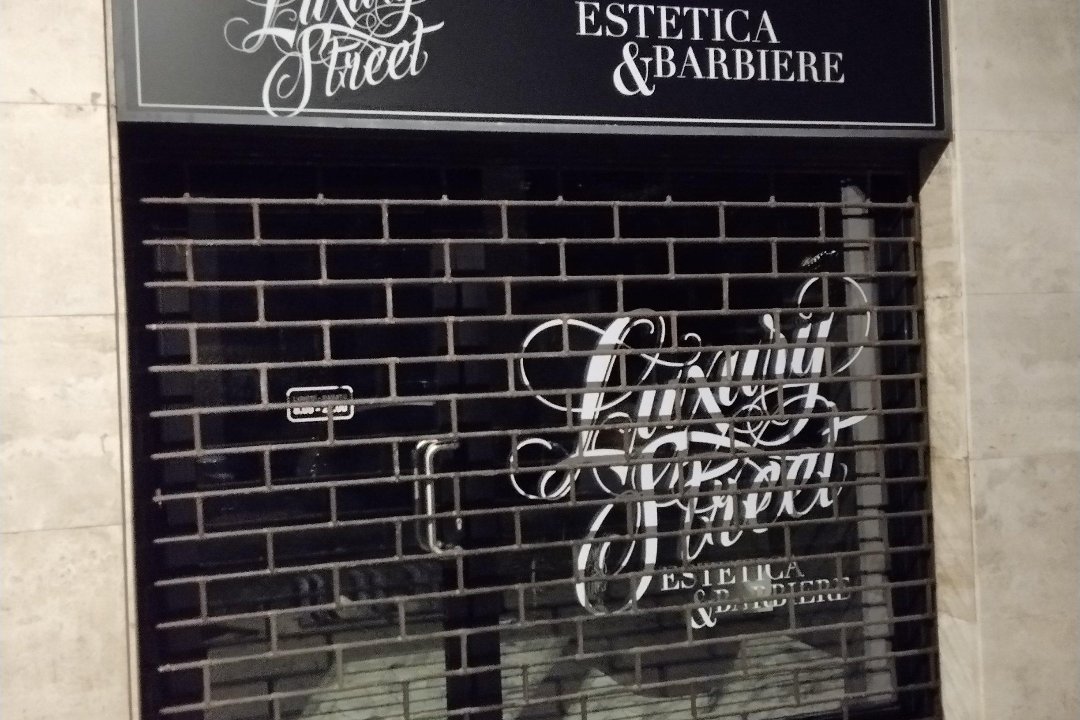 Luxury
Street
ESTETICA
&BARBIERE
Luxury
Street
ESTETICA
&BARBIERE